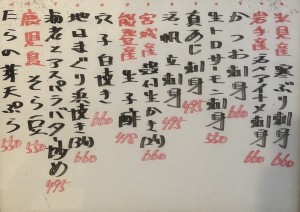 氷見産 寒ぶり刺身
岩手産 活〆アイナメ刺身
かつお刺身 660
生トロサーモン刺身 550
真あじ刺身 495
活帆立刺身 495
宮城産 殻付生かき(1ヶ)
能登産 生子酢 418
穴子白焼き 660
地はまぐり浜焼き(2ヶ) 660
海老とアスパラバター炒め 495
鹿児島 そら豆 550
たらの芽天ぷら 550